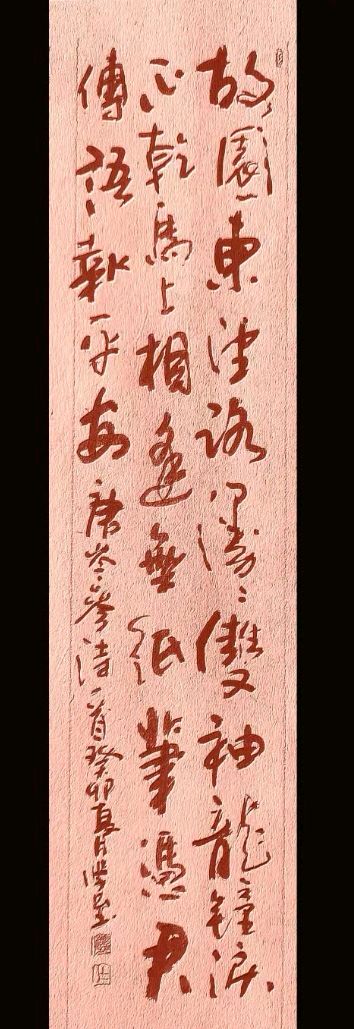 故園東望路漫〻雙袖龍鐘淚
不乾馬上相逢無紙筆憑君
傳語報平安 唐岑參詩一首癸卯夏月